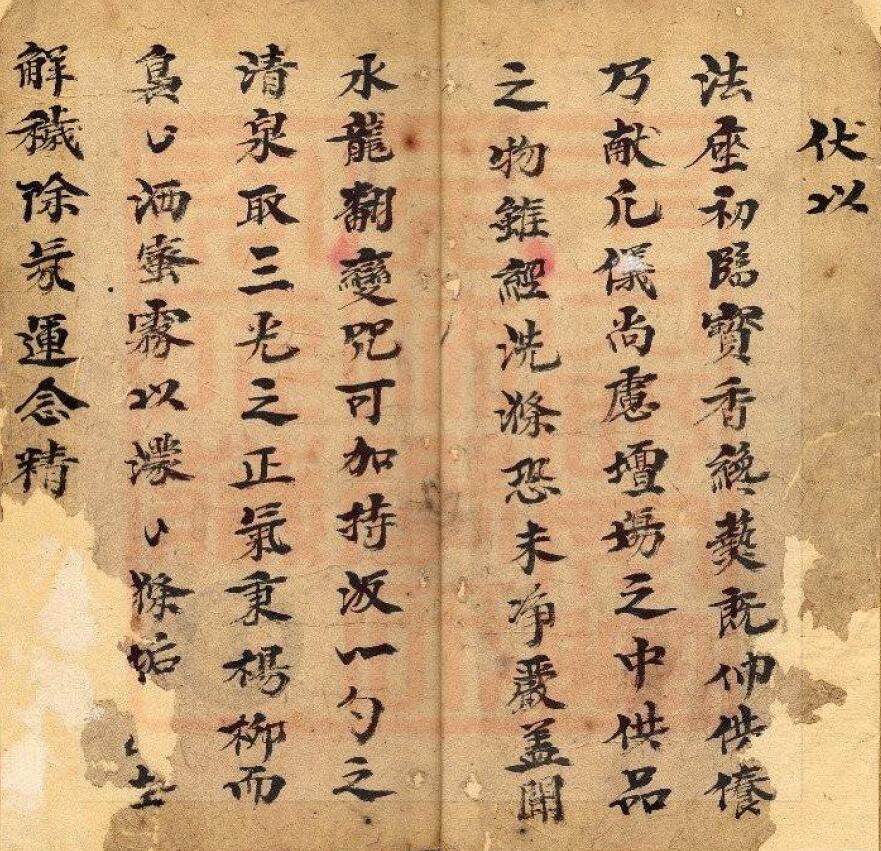 伏以
法座初臨寳香纔爇既伸供養
乃献凢儀尚慮壇場之中供品
之物雖經洗滌恐未净嚴盖聞
水龍翻變咒可加持汲一勺之
清泉取三光之正氣秉楊柳而
裊々洒蜜霧以濛々滌垢
觧穢除氛運念精